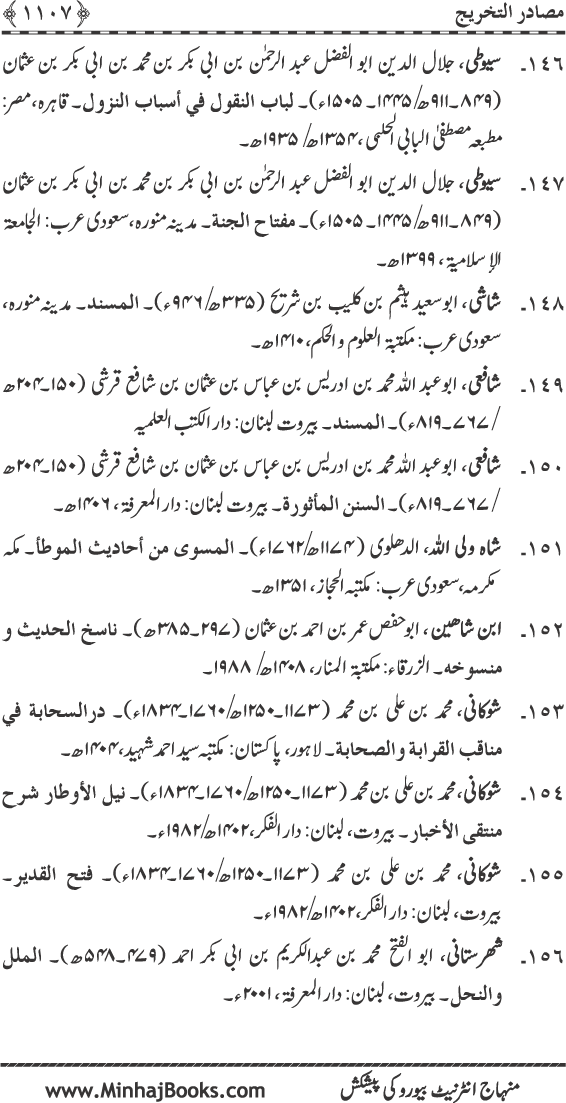 مصادر التخریج ﴿۱۱۰۷﴾
۱۴۶۔ سیوطی، جلال الدین ابو الفضل عبد الرحمٰن بن ابی بکر بن محمد بن ابی بکر بن عثمان
(۸۴۹۔۹۱۱ھ/۱۴۴۵۔۱۵۰۵ء)۔ لباب النقول في أسباب النزول۔ قاہرہ، مصر:
مطبعہ مصطفیٰ البابی الحلبی، ۱۳۵۴ھ/ ۱۹۳۵ء۔
۱۴۷۔ سیوطی، جلال الدین ابو الفضل عبد الرحمٰن بن ابی بکر بن محمد بن ابی بکر بن عثمان
(۸۴۹۔۹۱۱ھ/۱۴۴۵۔۱۵۰۵ء)۔ مفتاح الجنة۔ مدینہ منورہ، سعودی عرب: الجامعۃ
الإسلامیۃ، ۱۳۹۹ھ۔
۱۴۸۔ شاشی، ابو سعید ہیثم بن کلیب بن شریح (۳۳۵ھ/۹۴۶ء)۔ المسند۔ مدینہ منورہ،
سعودی عرب: مکتبۃ العلوم والحکم، ۱۴۱۰ھ۔
۱۴۹۔ شافعی، ابو عبد اللہ محمد بن ادریس بن عباس بن عثمان بن شافع قرشی (۱۵۰۔۲۰۴ھ
/۷۶۷۔۸۱۹ء)۔ المسند۔ بیروت لبنان: دار الکتب العلمیہ
۱۵۰۔ شافعی، ابو عبد اللہ محمد بن ادریس بن عباس بن عثمان بن شافع قرشی (۱۵۰۔۲۰۴ھ
/۷۶۷۔۸۱۹ء)۔ السنن المأثورة۔ بیروت لبنان: دار المعرفۃ، ۱۴۰۶ھ۔
۱۵۱۔ شاہ ولی اللہ، الدھلوی (۱۱۷۴ھ/۱۷۶۲ء)۔ المسوی من أحادیث الموطأ۔ مکہ
مکرمہ، سعودی عرب: مکتبہ الحجاز، ۱۳۵۱ھ۔
۱۵۲۔ ابن شاھین، ابو حفص عمر بن احمد بن عثمان (۲۹۷۔۳۸۵ھ)۔ ناسخ الحدیث و
منسوخه۔ الزرقاء: مکتبۃ المنار، ۱۴۰۸ھ/ ۱۹۸۸۔
۱۵۳۔ شوکانی، محمد بن علی بن محمد (۱۱۷۳۔۱۲۵۰ھ/۱۷۶۰۔۱۸۳۴ء)۔ درالسحابة في
مناقب القرابة والصحابة۔ لاہور، پاکستان: مکتبہ سید احمد شہید، ۱۴۰۴ھ۔
۱۵۴۔ شوکانی، محمد بن علی بن محمد (۱۱۷۳۔۱۲۵۰ھ/۱۷۶۰۔۱۸۳۴ء)۔ نیل الأوطار شرح
منتقی الأخبار۔ بیروت، لبنان: دار الفکر، ۱۴۰۲ھ/۱۹۸۲ء۔
۱۵۵۔ شوکانی، محمد بن علی بن محمد (۱۱۷۳۔۱۲۵۰ھ/۱۷۶۰۔۱۸۳۴ء)۔ فتح القدیر۔
بیروت، لبنان: دار الفکر، ۱۴۰۲ھ/۱۹۸۲ء۔
۱۵۶۔ شھرستانی، ابو الفتح محمد بن عبد الکریم بن ابی بکر احمد (۴۷۹۔۵۴۸ھ)۔ الملل
والنحل۔ بیروت، لبنان: دار المعرفۃ، ۲۰۰۱ء۔
منہاج انٹرنیٹ بیورو کی پیشکش www.MinhajBooks.com